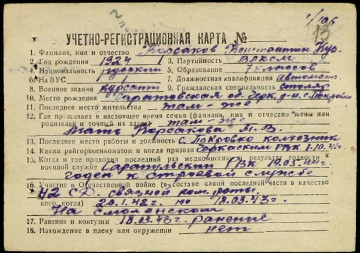 УЧЕТНО-РЕГИСТРАЦИОННАЯ КАРТА №
1. Фамилия, имя и отчество Корсаков Константин
2. Год рождения 1924 г. 3. Партийность ВЛКСМ
4. Национальность русский 5. Образование 7 классов
6. На ВУС 7. Должностная квалификация автомат.
8. Военное звание курсант 9. Гражданская специальность столяр
10. Место рождения Саратовская об.
11. Последнее местожительства там-же
12. Где проживает в настоящее время семья (фамилия, имя и отчество жены или
родителей и точный их адрес) там-же
Мать Корсакова М. В.
13. Последнее место работы и должность с. Покровко колхозник
14. Каким райвоенкоматом и когда призван РВК 1.10.
15. Когда и где проходил последний раз медкомиссию и результат годности к
военной службе Сарапульский ГВК 19.05.
годен к строевой службе
16. Участие в Отечественной войне (в составе какой последней части в качестве
кого, когда)
42 СД. связной ком. роты.
20.1.42 г. по 18.03.43 г.
На смоленском
17. Ранения и контузии 18.03.43 г. ранение
18. Нахождение в плену или окружении нет